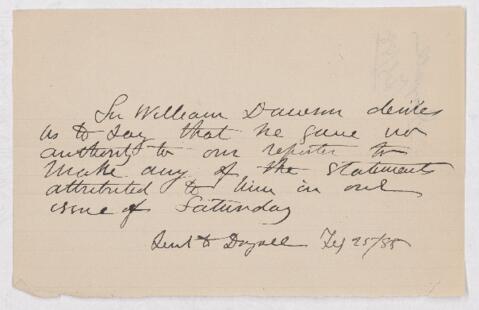 Sir William Dawson desires
us to say that he gave no
authority to our reporter to
make any of the statements
attributed to him in our
issue of Saturday
Sent to Feb 25/88